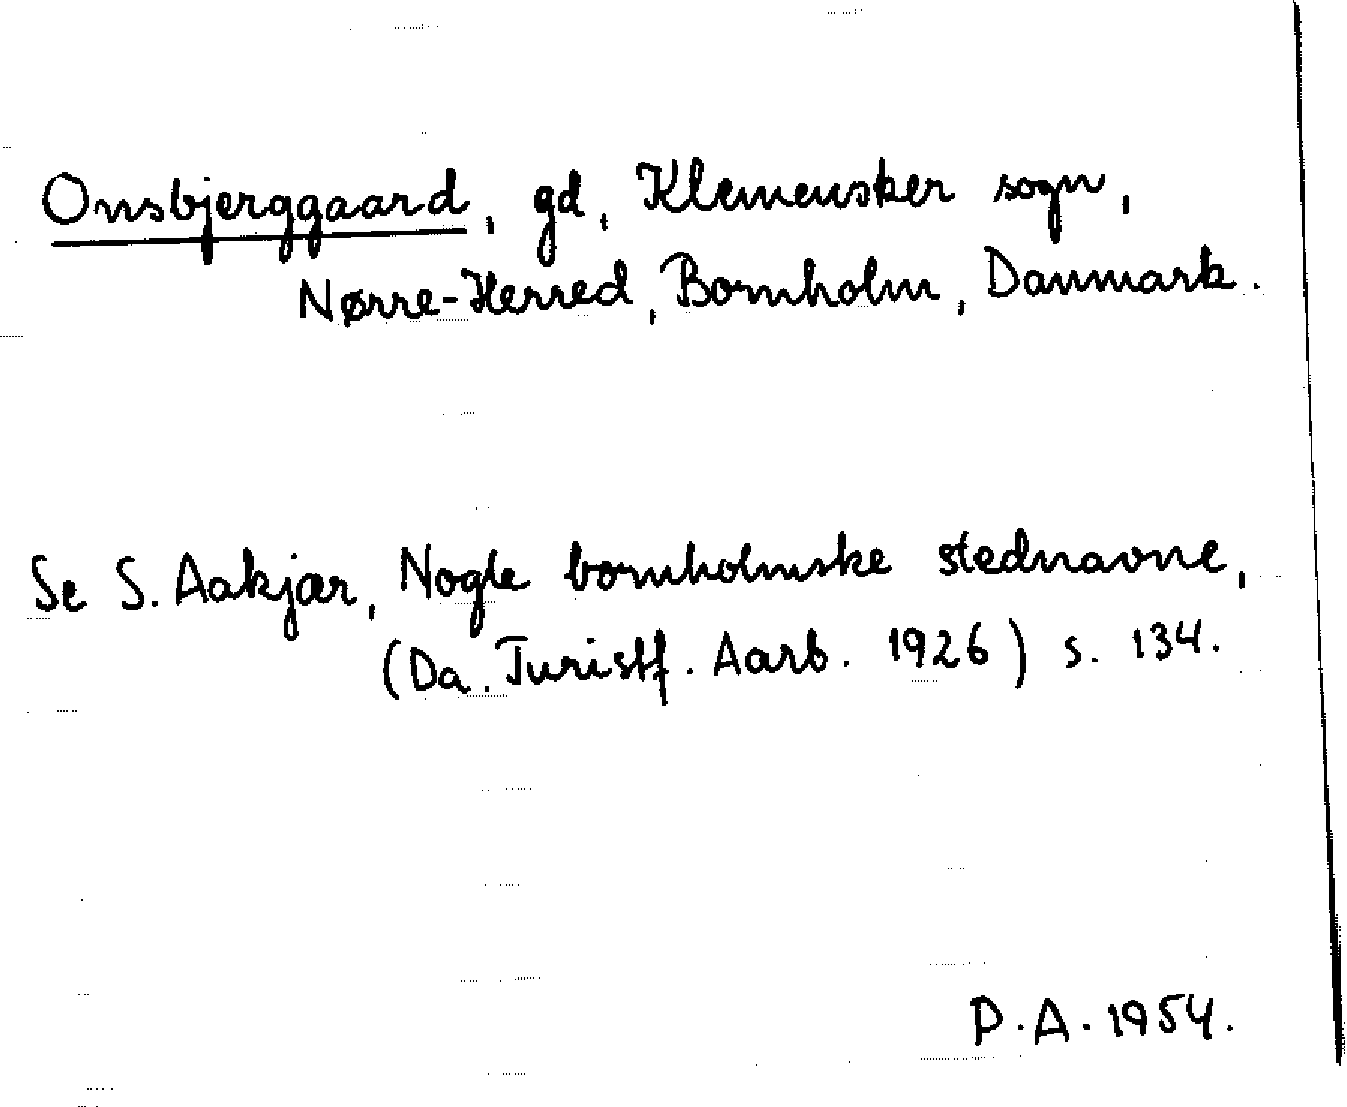 Onsbjerggaard, gd, Klemensker sogn,
Nørre-Herred, Bornholm, Danmark.
Se S. Aakjær, Nogle bornholmske stednavne,
(Da. Turistf. Aarb. 1926) s. 134.
P.A. 1954.